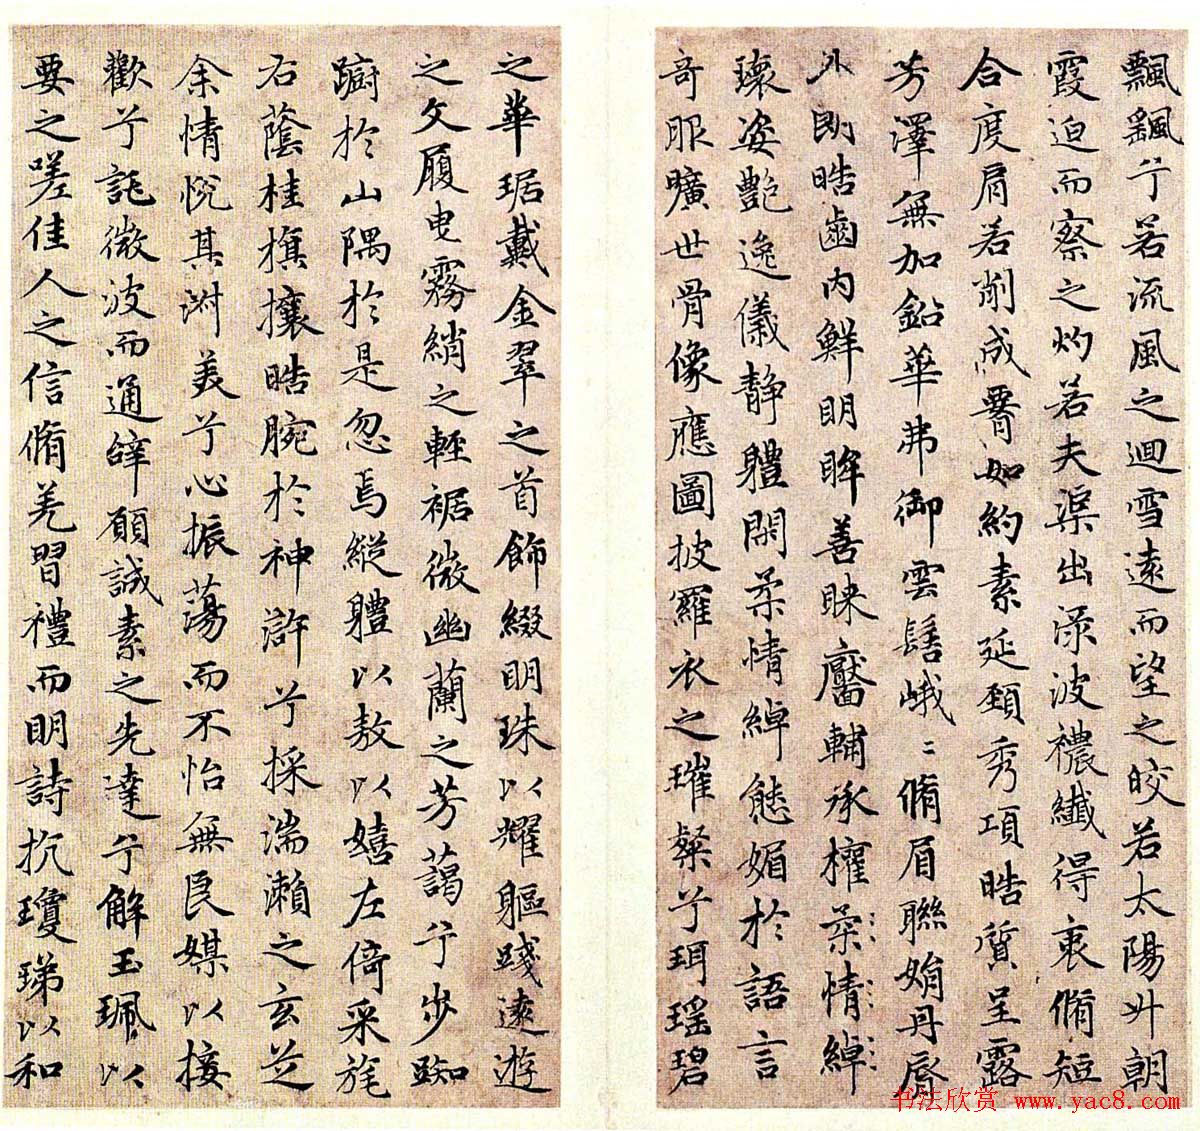 飄飖兮若流風之迴雪遠而望之皎若太陽升朝
霞迫而察之灼若夫渠出淥波襛纖得衷脩短
合度肩若削成腰如約素延頸秀項皓質呈露
芳澤無加鉛華弗御雲髻峨〻脩眉聯娟丹脣
外朗皓齒內鮮明眸善睞靨輔承權柔情綽
瓌姿艷逸儀靜體閑柔情綽態媚於語言
奇服曠世骨像應圖披羅衣之璀粲兮珥瑤碧
之華琚戴金翠之首飾綴明珠以耀軀踐遠遊
之文履曳霧綃之輕裾微幽蘭之芳藹兮步踟
躕於山隅於是忽焉縱體以敖以嬉左倚采旄
右蔭桂旗攘皓腕於神滸兮採湍瀨之玄芝
余情悅其淑美兮心振蕩而不怡無良媒以接
歡兮託微波而通辭願誠素之先達兮解玉珮以
要之嗟佳人之信脩羌習禮而明詩抗瓊珶以和
书法欣赏 www.yac8.com